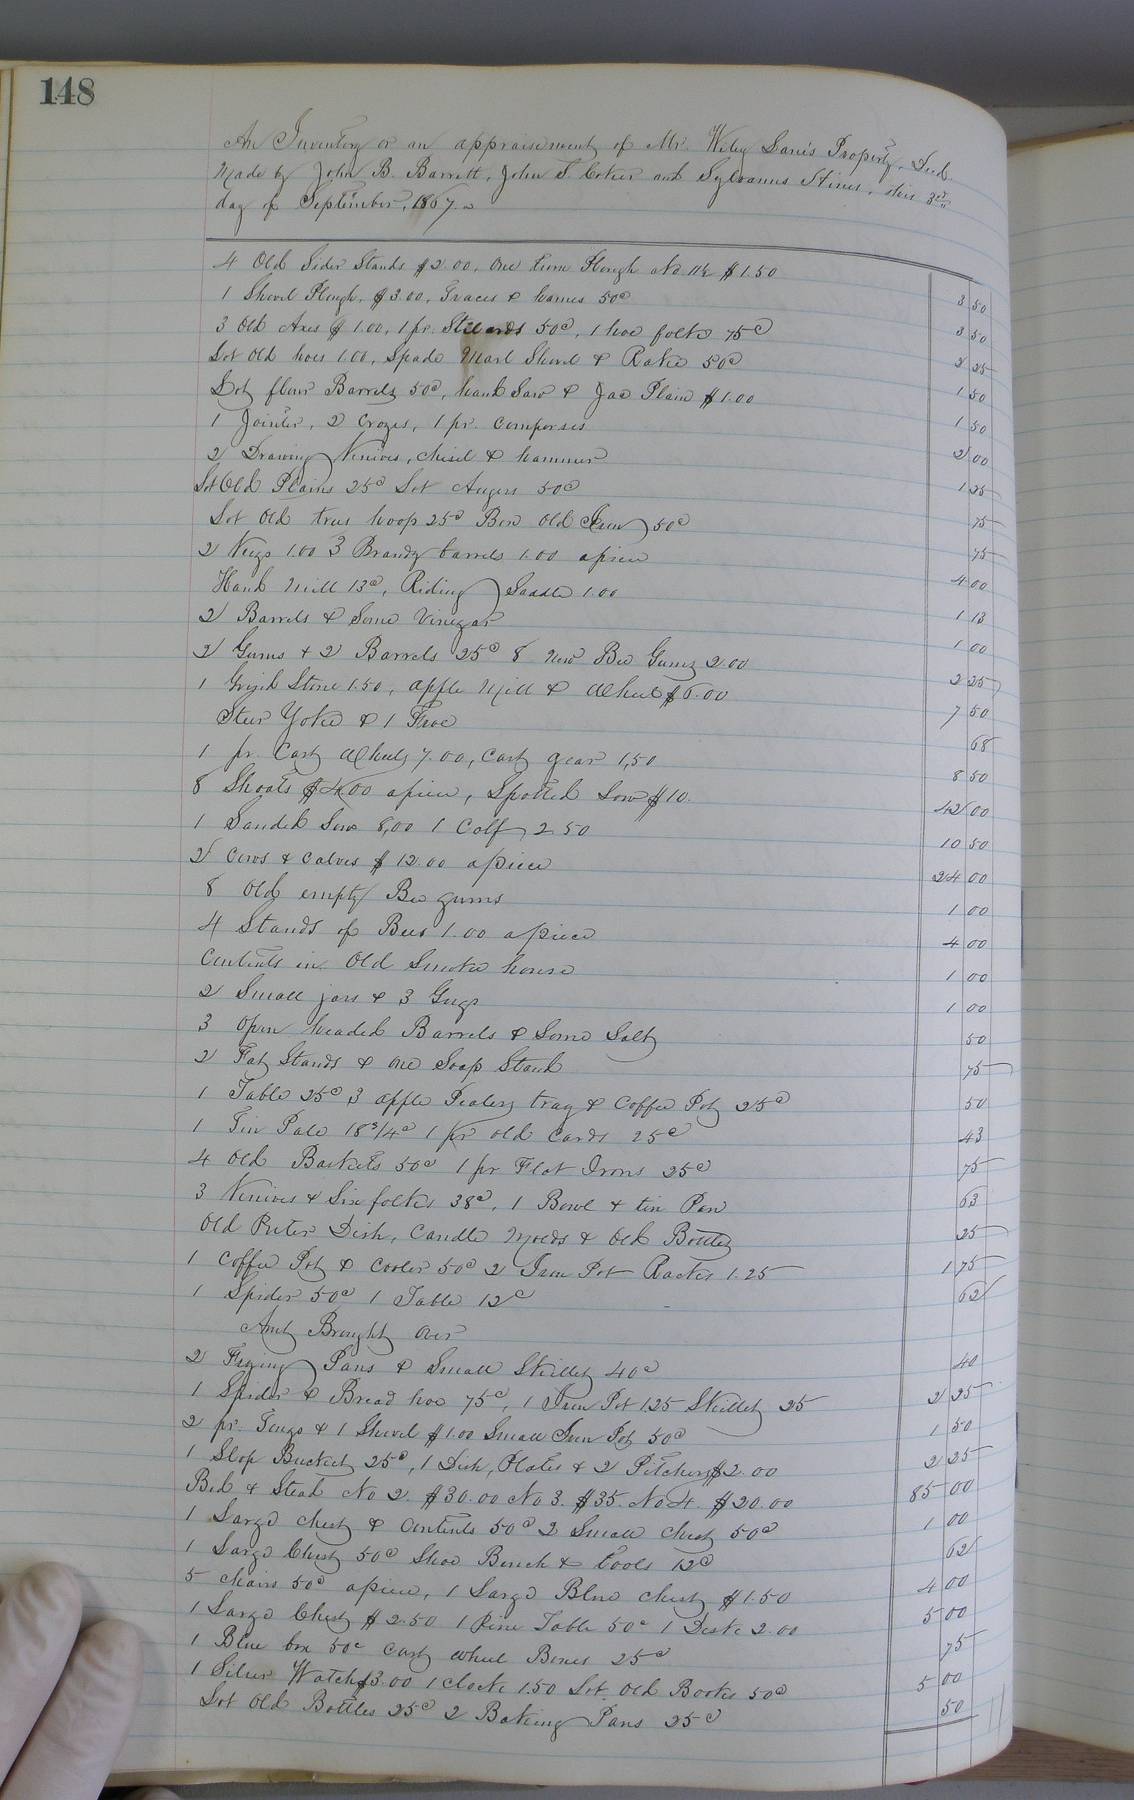 148
An Inventory or an appraisement of Mr. Wiley Lane's Property, Decd.
Made by John B. Barrett, John T. Coker and Sylvanus Stines, this 3rd
day of September, 1867.
4 Old Sider Stands $2.00, One turn Plough No 11½ $1.50 3 50
1 Shovel Plough, $3.00, Traces & hames 50c 3 50
3 Old Axes $1.00, 1 pr. Stillards 50c, 1 hoe folks 75c 2 25
Lot Old hoes 1.00, Spade Marl Shovel & Rake 50c 1 50
Lot flour Barrels 50c, hand Saw & Jac Plain $1.00 1 50
1 Jointer, 2 Crozes, 1 pr. Comporses 2 00
2 Drawing Knives, chisel & hammer 1 25
Lot Old Plains 25c Lot Augers 50c 75
Lot Old trus hoop 25c Box Old Iron 50c 75
2 Kegs 1.00 3 Brandy barrels 1.00 apiece 4 00
Hand Mill 13c, Riding Saddle 1.00 1 13
2 Barrels & Some Vinegar 1 00
2 Gums & 2 Barrels 25c 8 New Bee Gums 2.00 2 25
1 Grind Stone 1.50, apple Mill & Wheel $6.00 7 50
Steer Yoke & 1 Froe 68
1 pr. Cart Wheels 7.00, Cart gear 1,50 8 50
8 Shoats $4.00 apiece, Spotted Sow $10. 42 00
1 Sanded Sow 8,00 1 Calf 2.50 10 50
2 Cows & Calves $12.00 apiece 24 00
8 Old empty Bee gums 1 00
4 Stands of Bees 1.00 apiece 4 00
Contents in Old Smoke house 1 00
2 Small jars & 3 Gugs 1 00
3 Open headed Barrels & Some Salt 50
2 Fat Stands & one Soap Stand 75
1 Table 25c, 3 apple Pealers tray & Coffee Pot 25c 50
1 Tin Pale 18¾c 1 pr old Cards 25c 43
4 Old Baskets 50c 1 pr Flat Irons 25c 75
3 Knives & Six folks 38c, 1 Bowl & tin Pan 63
Old Puter Dish, Candle Molds & Old Bottles 25
1 Coffee Pot & Cooler 50c 2 Iron Pot Racks 1.25 1 75
1 Spider 50c 1 Table 12c 62
Amt Brought Over
2 Frying Pans & Small Skillet 40c 40
1 Spider & Bread hoe 75c, 1 Iron Pot 1.25 Skillet 25 2 25
2 pr. Tongs & 1 Shovel $1.00 Small Iron Pot 50c 1 50
1 Slop Bucket 25c, 1 Dish, Plates & 2 Pitchers $2.00 2 25
Bed & Stead No 2. $30.00 No 3. $35. No 4. $20.00 85 00
1 Large Chest & Contents 50c 2 Small Chest 50c 1 00
1 Large Chest 50c Shoe Bench & tools 12c 62
5 Chairs 50c apiece, 1 Large Blue Chest $1.50 4 00
1 Large Chest $2.50 1 Pine Table 50c 1 Desk 2.00 5 00
1 Blue box 50c Cart wheel Boxes 25c 75
1 Silver Watch $3.00 1 Clock 1.50 Lot Old Books 50c 5 00
Lot Old Bottles 25c 2 Baking Pans 25c 50